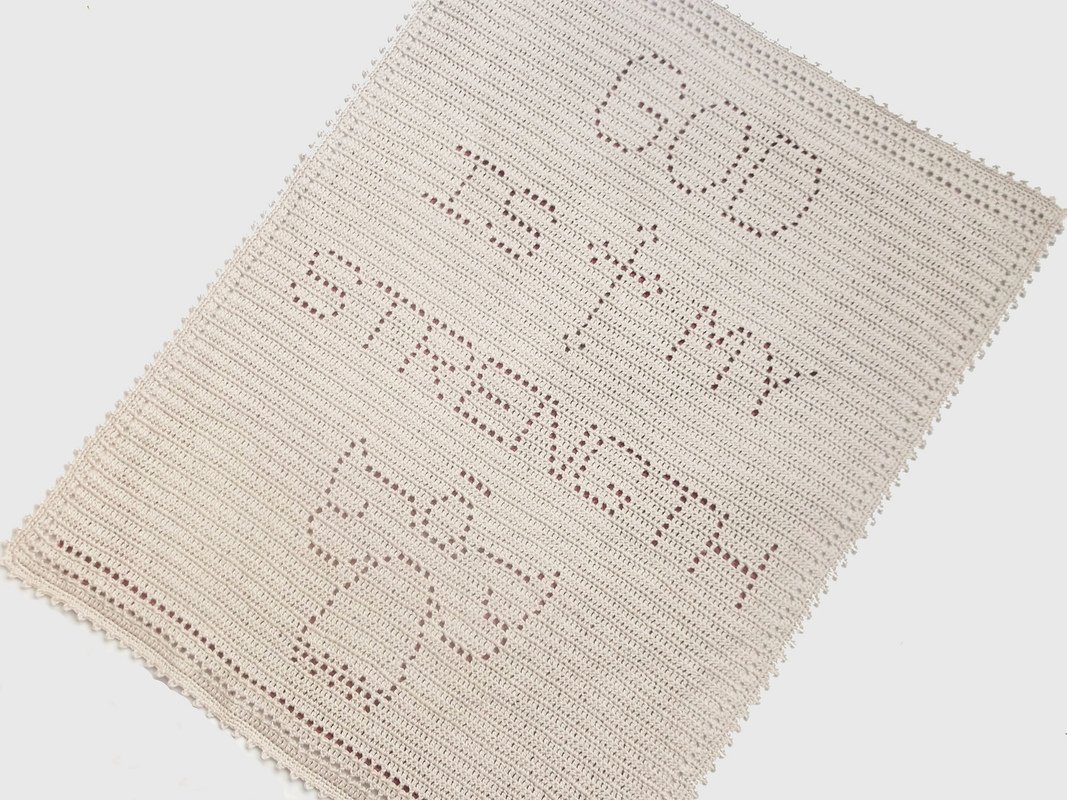 GOD
IS MY
STRENGTH